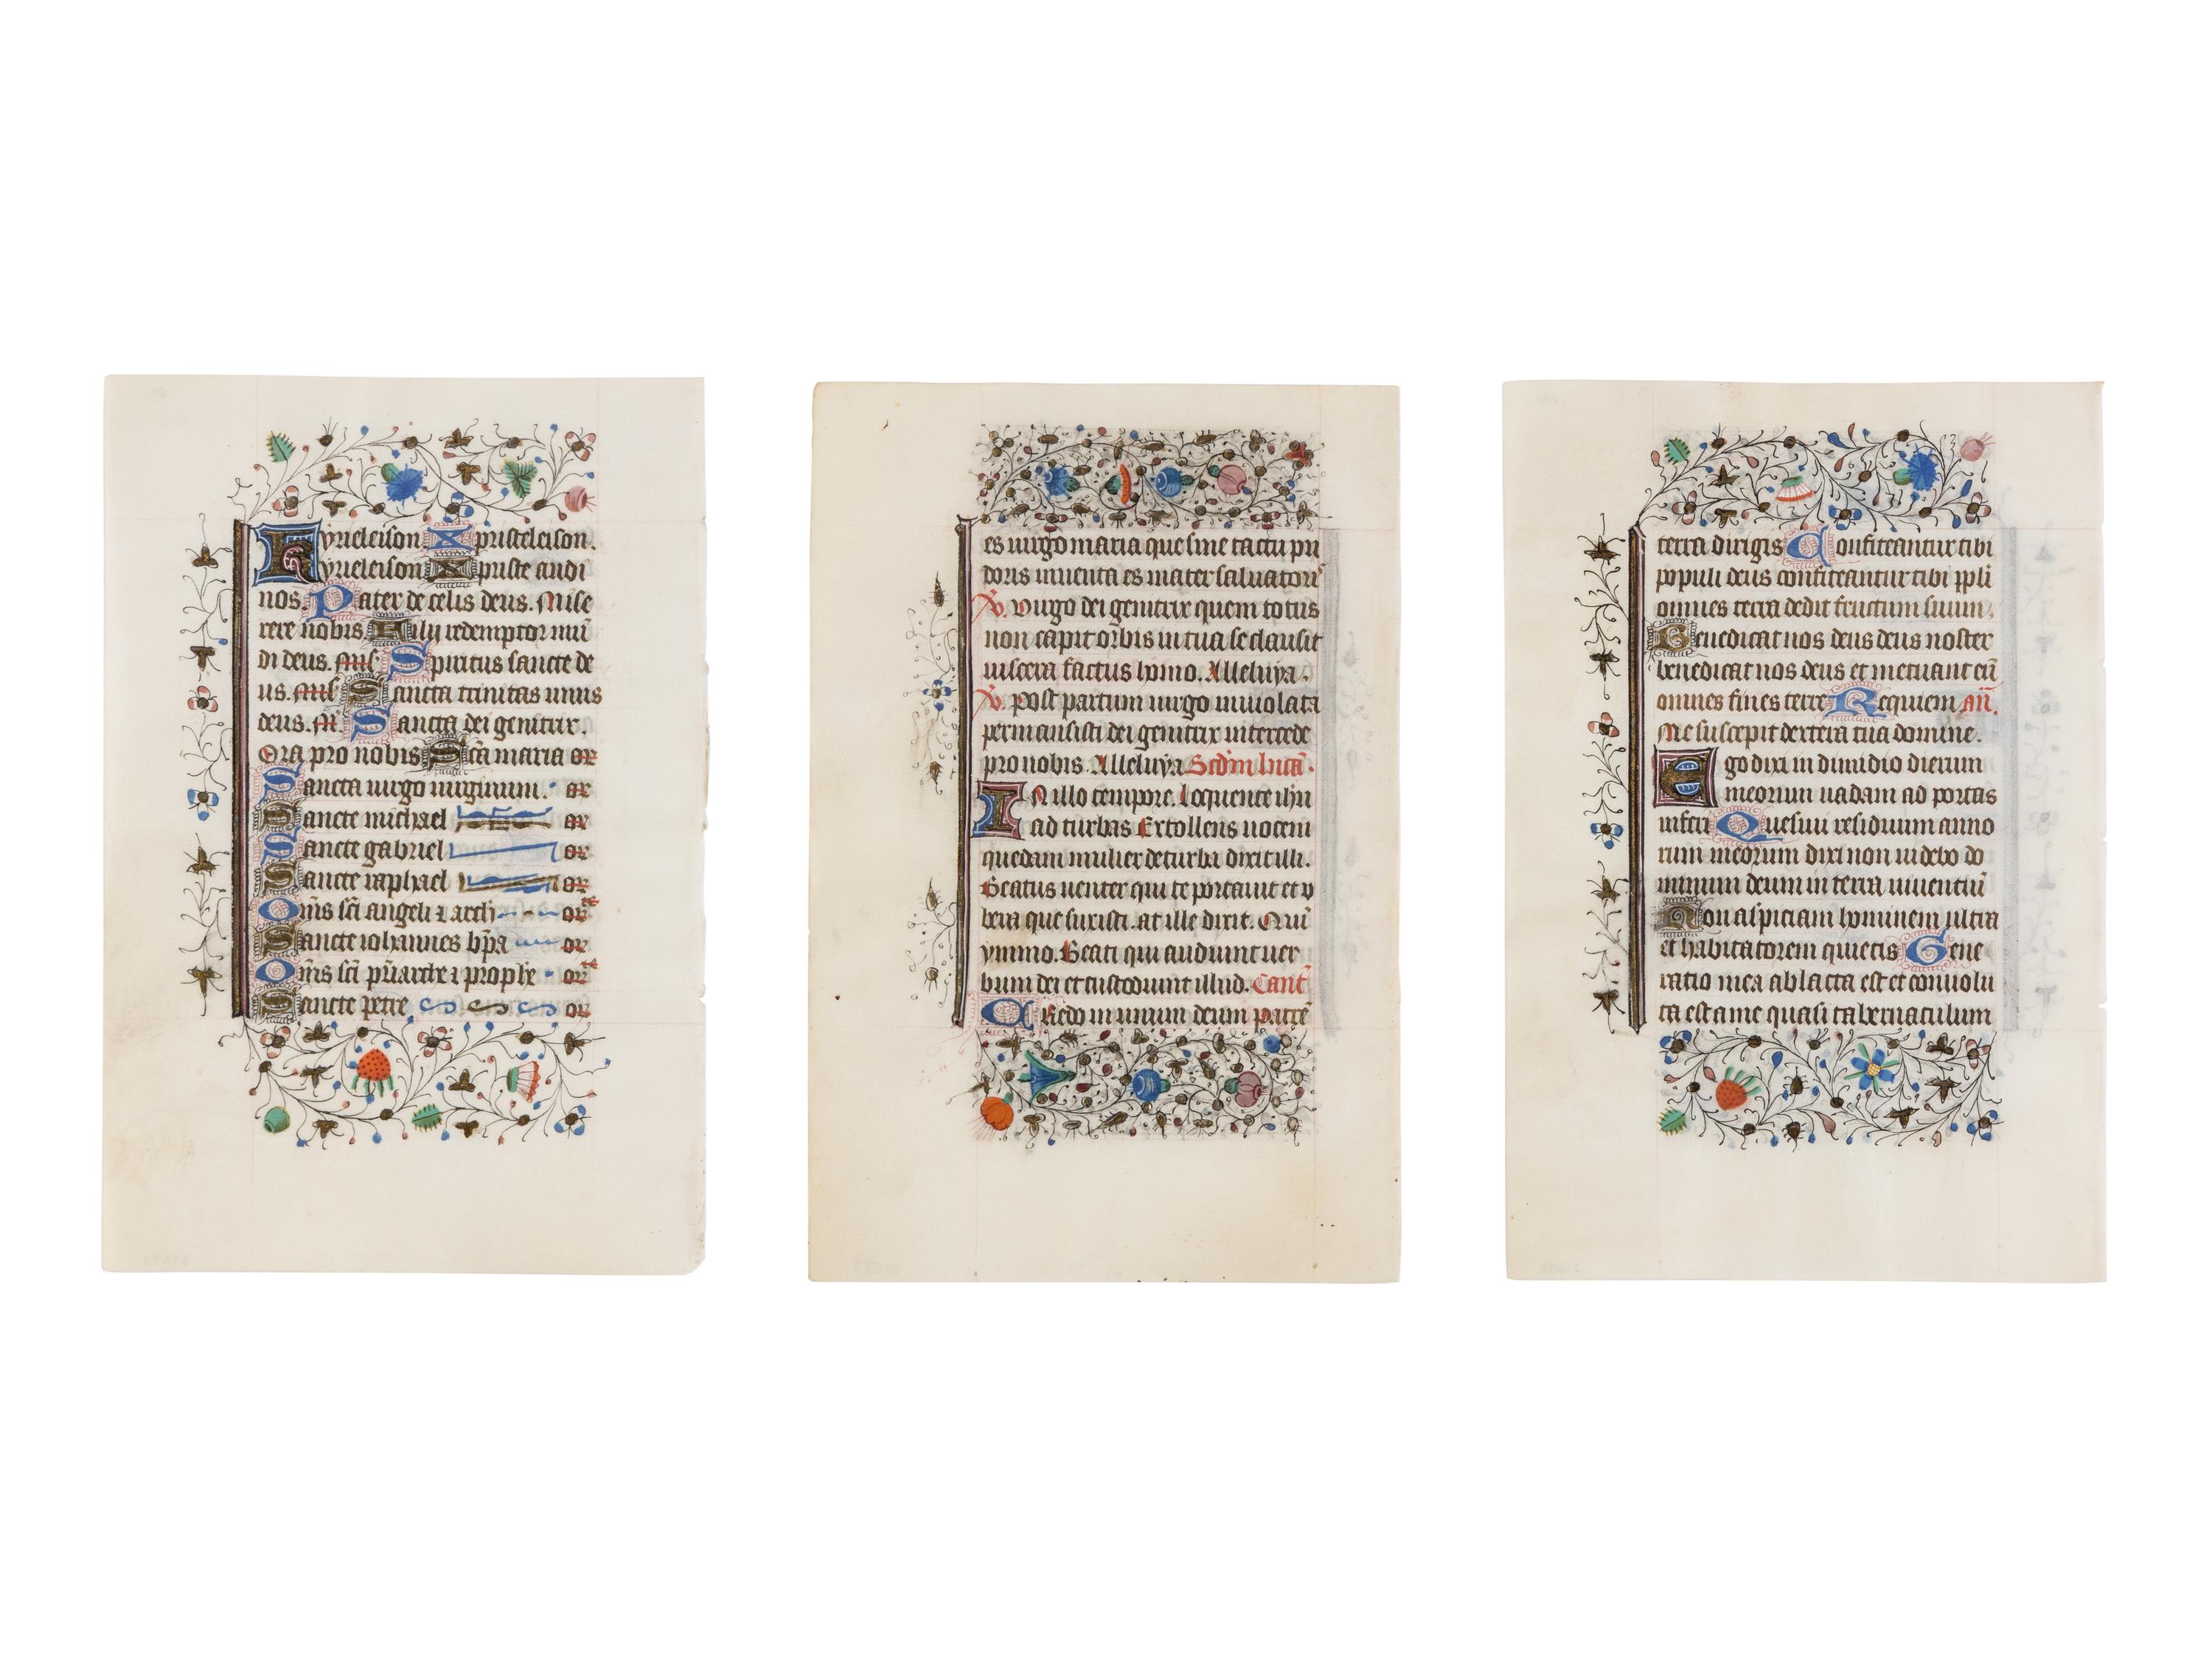 Kyrieleison Xpristeleison.
Kyrieleison Xpriste audi
nos. Pater de celis deus. Mise
rere nobis Fily redemptor mũ
di deus. Mis Spiritus sancte de
us. Mis Sancta trinitas unus
deus. M̃. Sancta dei genitrix.
Ora pro nobis Scã maria or
Sancta virgo virginum. or
Sancte michael or
Sancte gabriel or
Sancte raphael or
Om̃s scĩ angeli ⁊ arch or
Sancte iohannes bp̃a or
Om̃s scĩ pr̃iarche ⁊ prophe or
Sancte petre or
es virgo maria que sine tactu pu
doris inventa es mater salvatoris
℣. Virgo dei genitrix quem totus
non capit orbis in tua se clausit
viscera factus homo. Alleluya.
℣. Post partum virgo inviolata
permansisti dei genitrix intercede
pro nobis. Alleluya Scdm lucã.
IN illo tempore. Loquente ihũ
ad turbas Extollens vocem
quedam mulier de turba dixit illi.
Beatus venter qui te portavit et v
bera que suxisti. at ille dixit. Quĩ
ymmo. Beati qui audiunt ver
bum dei et custodiunt illud. Cant̃
Credo in unum deum patrẽ
terra dirigis Confiteantur tibi
populi deus confiteantur tibi pp̃li
omnes terra dedit fructum suum.
Benedicat nos deus deus noster
benedicat nos deus et metuant eũ
omnes fines terre Requiem añ.
Me suscepit dextera tua domine.
Ego dixi in dimidio dierum
meorum vadam ad portas
inferi Quesivi residuum anno
rum meorum dixi non videbo do
minum deum in terra viventiũ
Non aspiciam hominem ultra
et habitatorem quietis Gene
ratio mea ablata est et convolu
ta est a me quasi tabernaculum